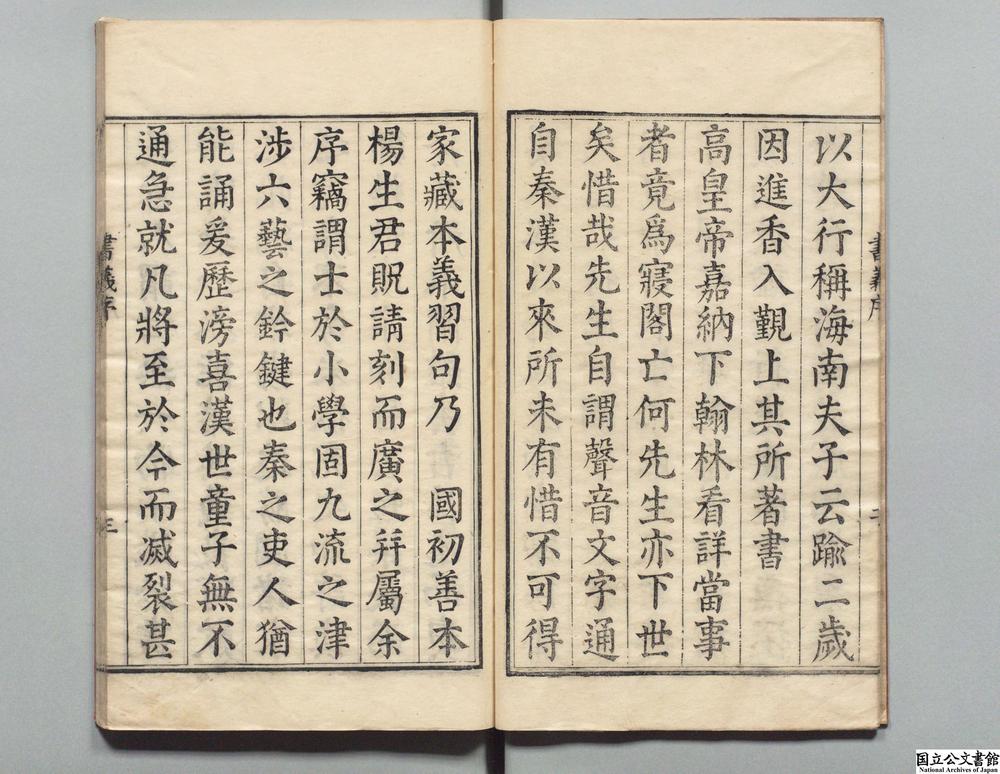 以大行稱海南夫子云踰二歲
因進香入覲上其所著書
高皇帝嘉納下翰林看詳當事
者竟爲寢閣亡何先生亦下世
矣惜哉先生自謂聲音文字通
自秦漢以來所未有惜不可得
書義序
家藏本義習句乃　國初善本
楊生君貺請刻而廣之幷屬余
序竊謂士於小學固九流之津
涉六藝之鈐鍵也秦之吏人猶
能誦爰歷滂喜漢世童子無不
通急就凡將至於今而滅裂甚
書義序
三
国立公文書館
National Archives of Japan